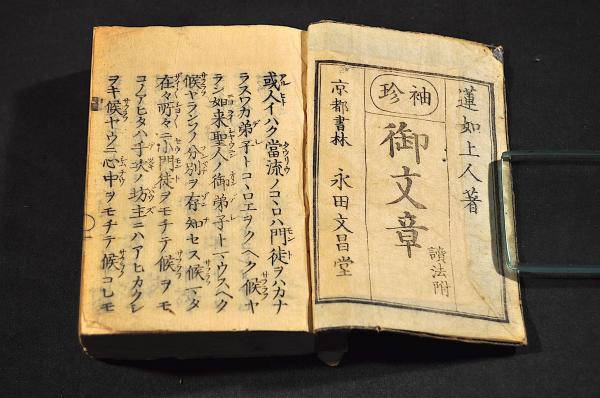 蓮如上人著
袖珍
御文章
讀法附
京都書林 永田文昌堂
或人イハク當流ノコヽロハ門徒ヲハカナ
ラスワカ弟子トコヽロエヲクヘク候ヤ
ラン如来聖人ノ御弟子トマウスヘク
候ヤランソノ分別ヲ存知セス候マタ
在々所々ニ小門徒ヲモチテ候ヲモ
コノアヒタハ手次ノ坊主ニハアヒカクシ
ヲキ候ヤウニ心中ヲモチテ候コレモ